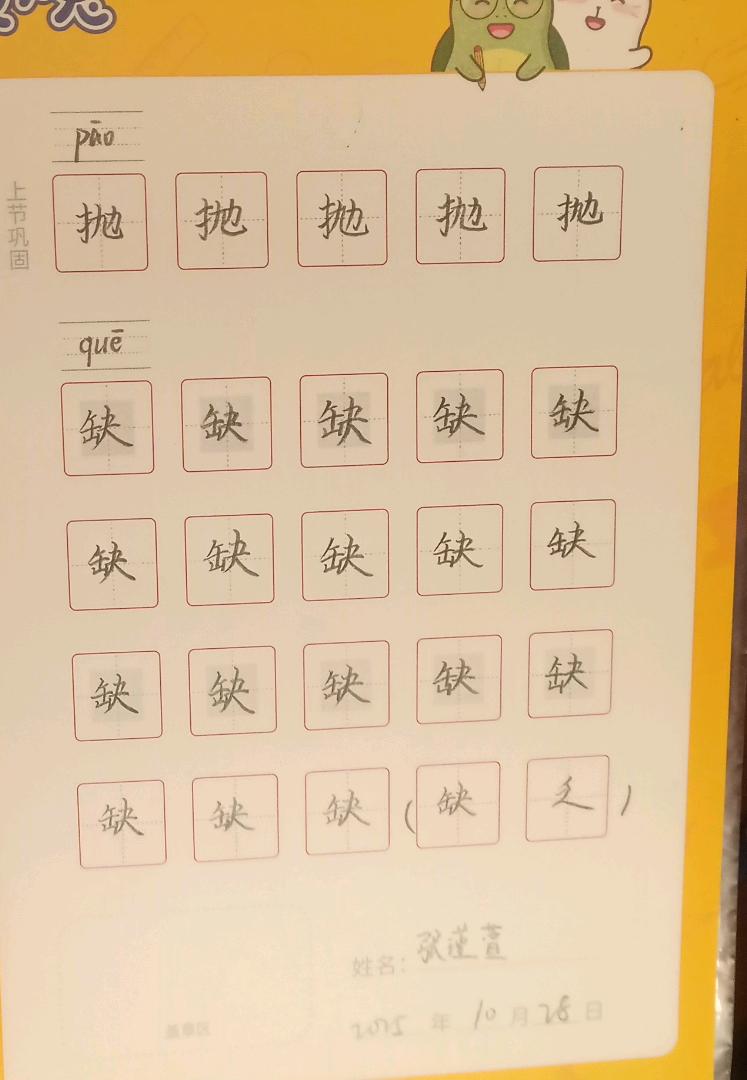 pāo
上节巩固
抛 抛 抛 抛 抛
quē
缺 缺 缺 缺 缺
缺 缺 缺 缺 缺
缺 缺 缺 缺 缺
缺 缺 缺 ( 缺 乏 )
姓名: 张莲萱
盖章区
2025 年 10 月 28 日